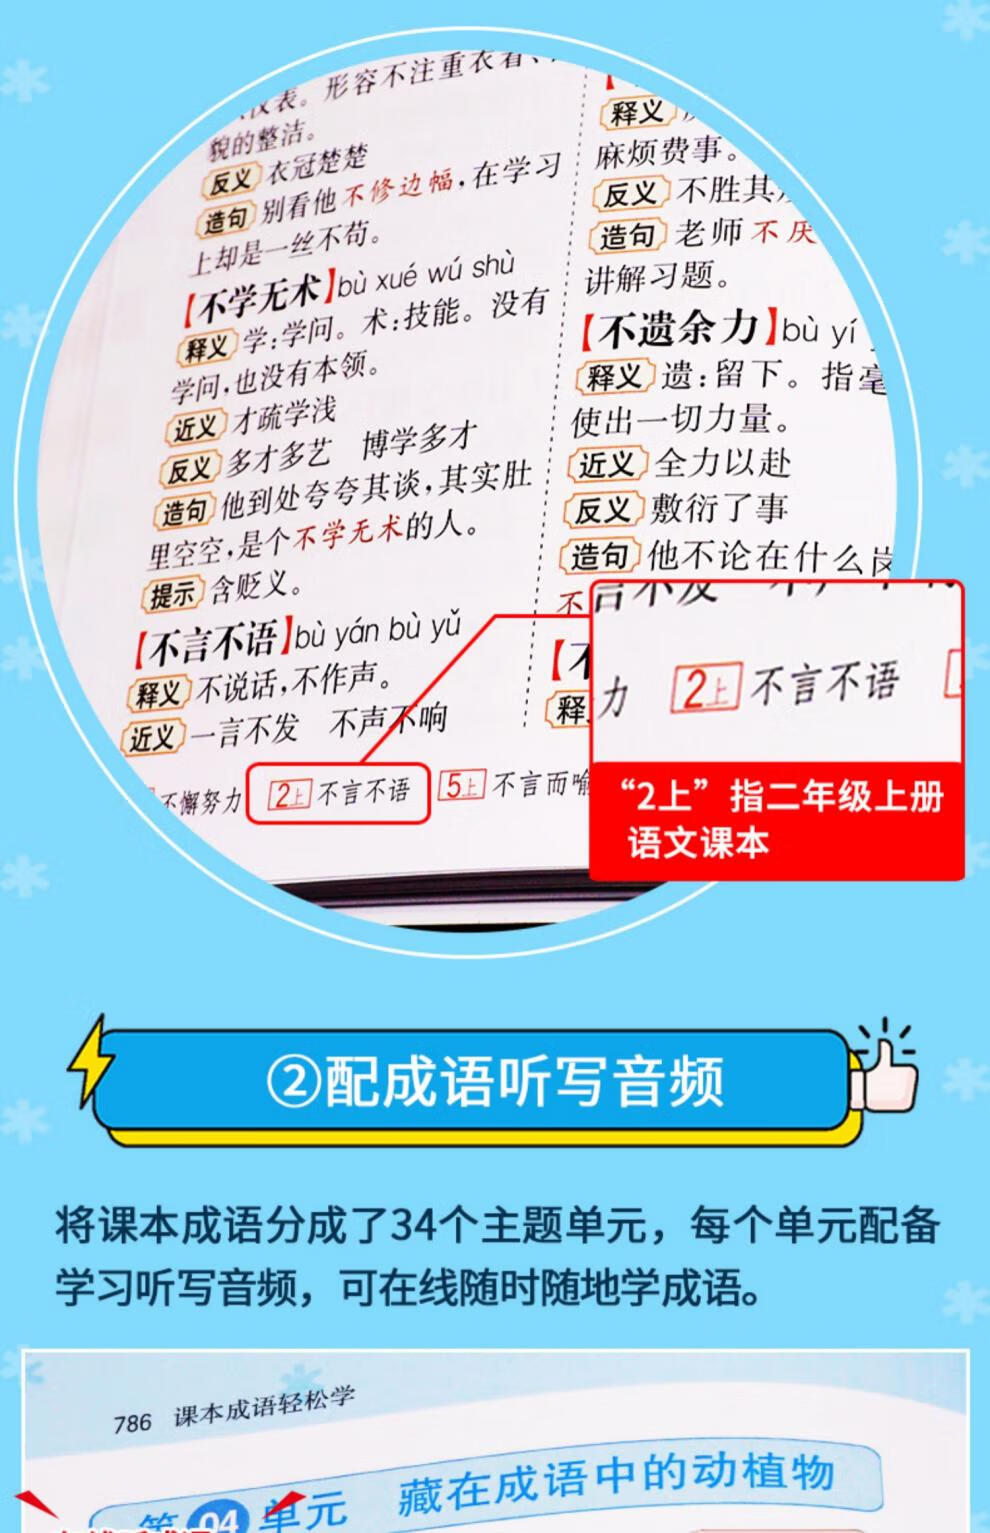 仪表。形容不注重衣着、
貌的整洁。
反义 衣冠楚楚
造句 别看他不修边幅，在学习
上却是一丝不苟。
【不学无术】bù xué wú shù
释义 学：学问。术：技能。没有
学问，也没有本领。
近义 才疏学浅
反义 多才多艺 博学多才
造句 他到处夸夸其谈，其实肚
里空空，是个不学无术的人。
提示 含贬义。
【不言不语】bù yán bù yǔ
释义 不说话，不作声。
近义 一言不发 不声不响
释义
麻烦费事。
反义 不胜其
造句 老师不厌
讲解习题。
【不遗余力】bù yí
释义 遗：留下。指毫
使出一切力量。
近义 全力以赴
反义 敷衍了事
造句 他不论在什么岗
不
【不
释
不懈努力 2上 不言不语 5上 不言而喻
言不发 不声
力 2上 不言不语
“2上”指二年级上册
语文课本
②配成语听写音频
将课本成语分成了34个主题单元，每个单元配备
学习听写音频，可在线随时随地学成语。
786 课本成语轻松学
第04单元 藏在成语中的动植物